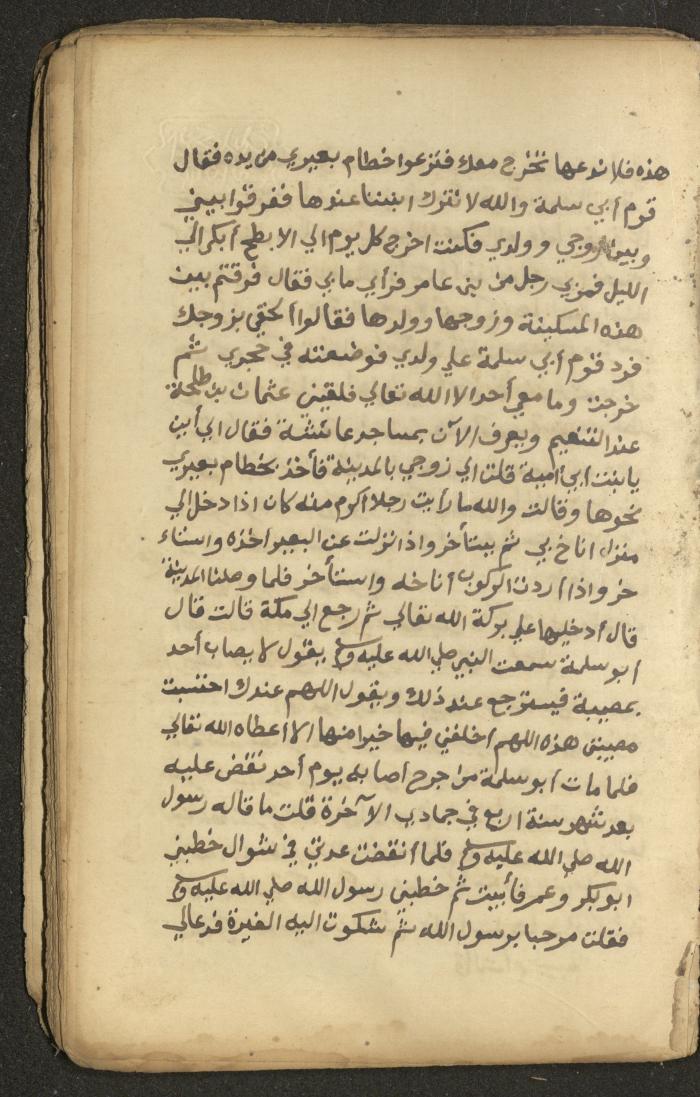 هذه فلا ندعها تخرج معك فنزعوا خطام بعيري من يده فقال
قوم أبي سلمة والله لا نترك ابننا عندها ففرقوا بيني
وبين زوجي وولدي فكنت اخرج كل يوم الي الابطح أبكي الي
الليل فمربي رجل من بني عامر فرأي ما بي فقال فرقتم بين
هذه المسكينة وزوجها وولدها فقالوا الحقي بزوجك
فرد قوم أبي سلمة علي ولدي فوضعته في حجري ثم
خرجت وما معي أحد الا الله تعالي فلقيني عثمان بن طلحة
عند التنعيم ويعرف الآن بمساجد عائشة فقال الي أين
يا بنت ابي أمية قلت الي زوجي بالمدينة فأخذ بخطام بعيري
نحوها وقالت والله ما رأيت رجلا أكرم منه كان اذا دخل الي
منزل اناخ بي ثم يتأخر واذا نزلت عن البعير اخذه واستاء
خر واذا أردت الركوب أناخه واستأخر فلما وصلنا المدينة
قال أدخليها علي بركة الله تعالي ثم رجع الي مكة قالت قال
أبو سلمة سمعت النبي صلي الله عليه وسلم يقول لا يصاب أحد
بمصيبة فيسترجع عند ذلك ويقول اللهم عندك احتسبت
مصيبتي هذه اللهم أخلفني فيها خيرا منها الا أعطاه الله تعالي
فلما مات أبو سلمة من جرح أصابه يوم أحد نقض عليه
بعد شهر سنة اربع في جمادي الآخرة قلت ما قاله رسول
الله صلي الله عليه وسلم فلما انقضت عدتي في شوال خطبني
ابو بكر وعمر فأبيت ثم خطبني رسول الله صلي الله عليه وسلم
فقلت مرحبا برسول الله ثم شكوت اليه الغيرة فدعالي